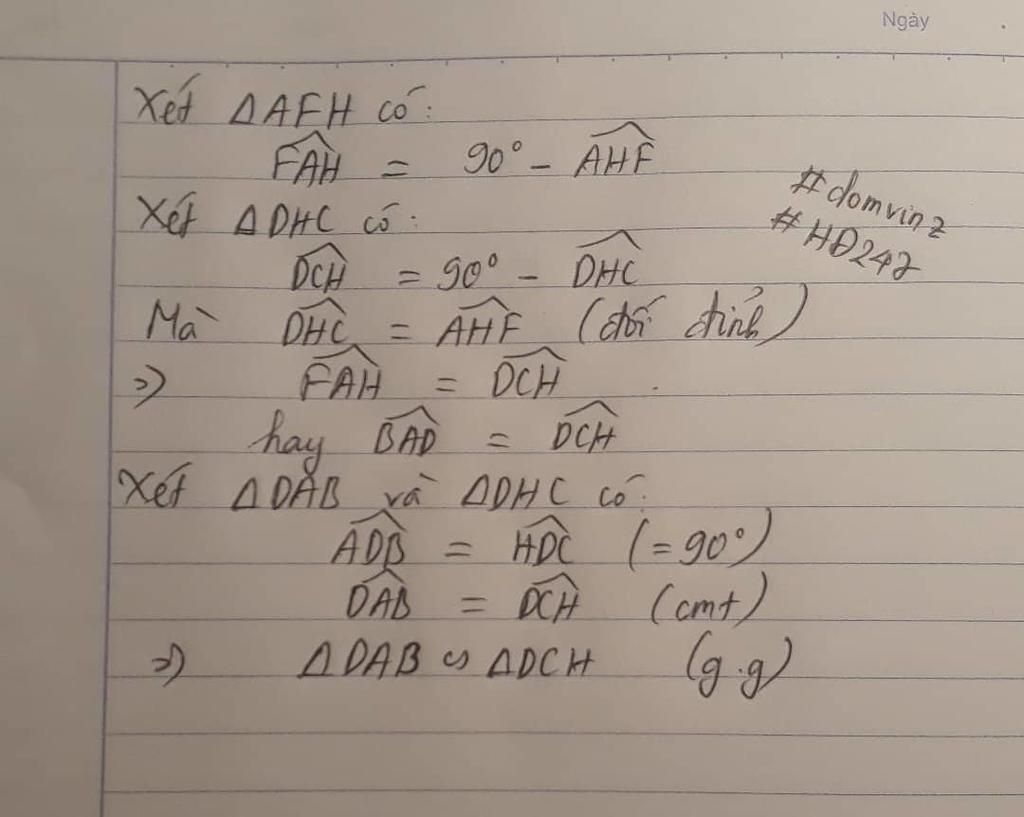 Ngày
Xét ΔAFH có:
\widehat{FAH} = 90° - \widehat{AHF}
Xét ΔDHC có:
\widehat{DCH} = 90° - \widehat{DHC}
#domvinz
#HĐ247
Mà \widehat{DHC} = \widehat{AHF} (đối đỉnh)
=> \widehat{FAH} = \widehat{DCH}
hay \widehat{BAD} = \widehat{DCH}
Xét ΔDAB và ΔDHC có:
\widehat{ADB} = \widehat{HDC} (=90°)
\widehat{DAB} = \widehat{DCH} (cmt)
=> ΔDAB ∽ ΔDCH (g.g)